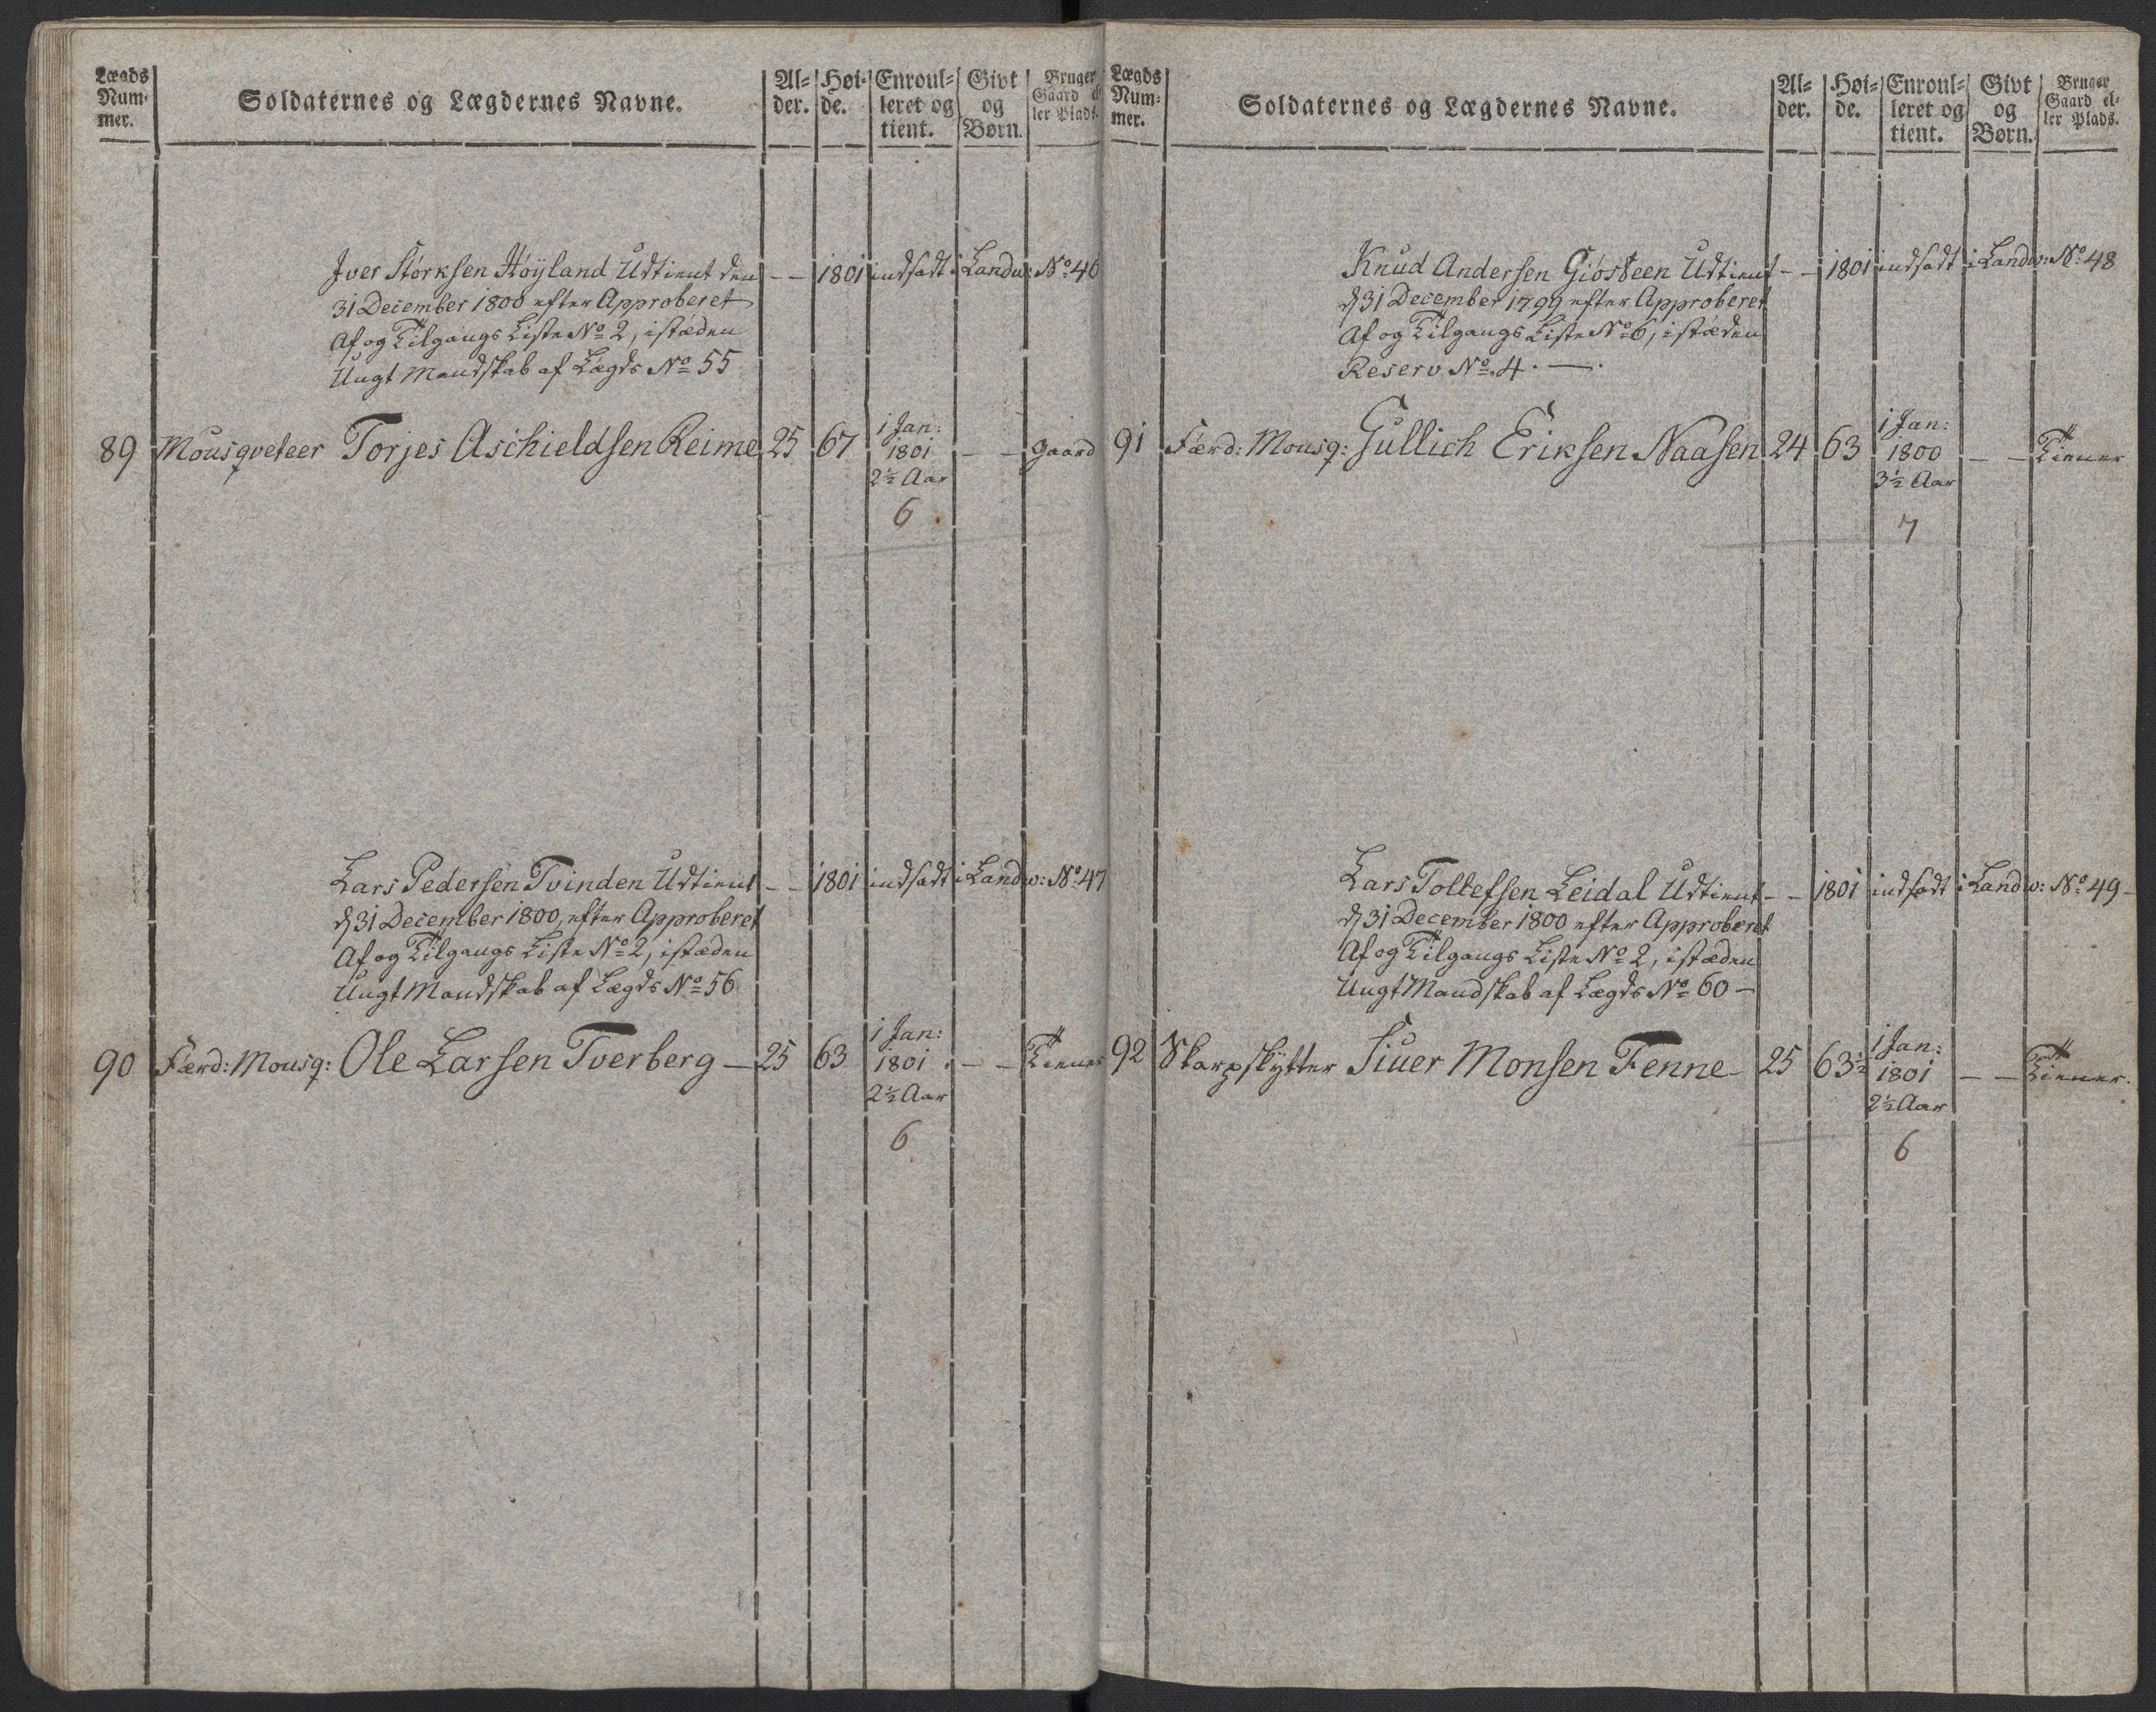 Lægds Num- mer. | Soldaternes og Lægdernes Navne. | Al- der. | Høi- de. | Enroul- leret og tient. | Givt og Børn. | Bruger Gaard el- ler Plads.
Iver Størksen Høyland Udtient den – – 1801 indsadt i Landv: No 46
31 December 1800 efter Approberet
Af og Tilgangs Liste No 2, istæden
Ungt Mandskab af Lægds No 55
1 Jan:
89 Mousqveteer Torjes Aschieldsen Reime 25 67 1801 – – Gaard
2½ Aar
6
Lars Pedersen Tvinden Udtient – – 1801 indsadt i Landv: No 47
d 31 December 1800, efter Approberet
Af og Tilgangs Liste No 2, istæden
Ungt Mandskab af Lægds No 56
1 Jan:
90 Færd: Mousq: Ole Larsen Tverberg – 25 63 1801 – – Tiener
2½ Aar
6
Lægds Num- mer. | Soldaternes og Lægdernes Navne. | Al- der. | Høi- de. | Enroul- leret og tient. | Givt og Børn. | Bruger Gaard el- ler Plads.
Knud Andersen Giøsteen Udtient – – 1801 indsadt i Landv: No 48
d 31 December 1799 efter Approberet
Af og Tilgangs Liste No 6, istæden
Reserv No. 4. —.
1 Jan:
91 Færd: Mousq: Gullich Eriksen Naasen 24 63 1800 – – Tiener
3½ Aar
7
Lars Tollefsen Leidal Udtient – – 1801 indsadt i Landv: No 49 –
d 31 December 1800 efter Approberet
Af og Tilgangs Liste No 2, istæden
Ungt Mandskab af Lægds No 60 –
1 Jan:
92 Skarpskytter Siuer Monsen Fenne – 25 63½ 1801 – – Tiener.
2½ Aar
6